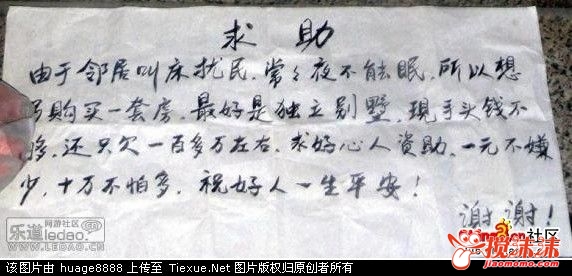 求 助
由于邻居叫床扰民,常々夜不能眠,所以想
另购买一套房,最好是独立别墅,现手头钱不
够,还只欠一百多万左右,求好心人资助,一元不嫌
少,十万不怕多,祝好人一生平安!
谢谢!
乐道 网游社区
ledao.com
社区
jiaomomo.com
该图片由 huage8888 上传至 Tiexue.Net 图片版权归原创者所有